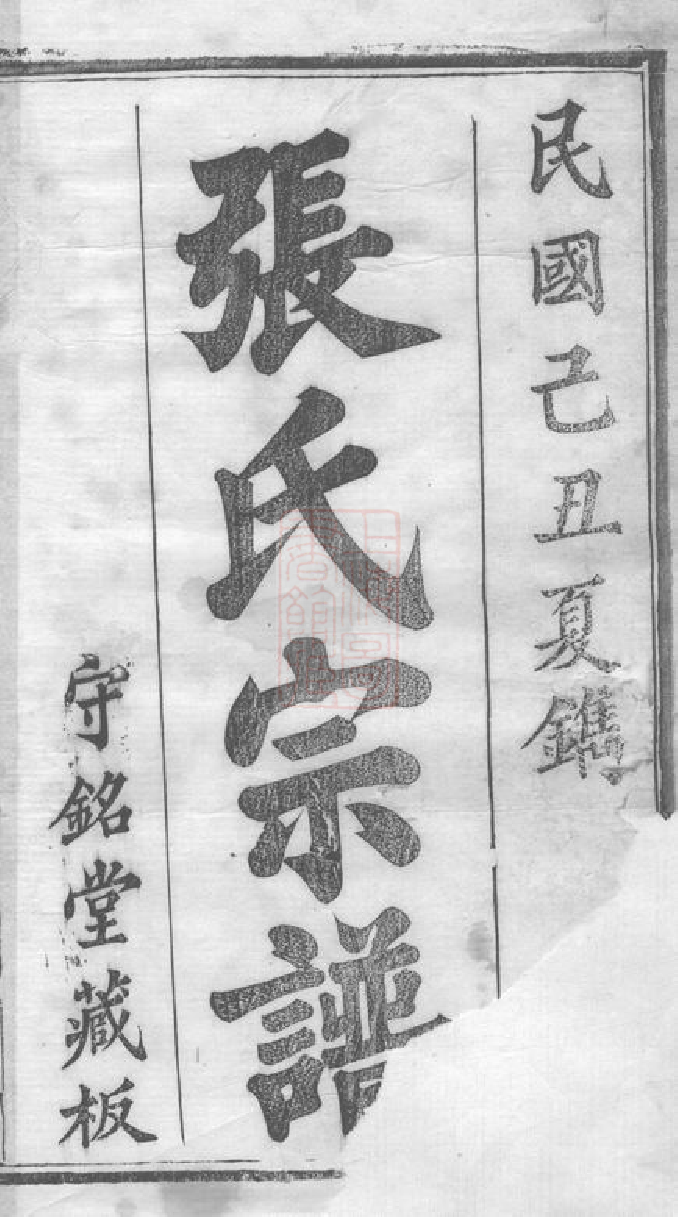 民國己丑夏鐫
張氏宗譜
守銘堂藏板